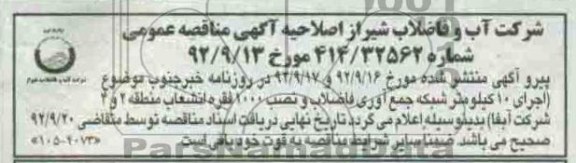 شرکت آب و فاضلاب شیراز اصلاحیه آگهی مناقصه عمومی
شماره ۴۱۴/۳۲۵۶۲ مورخ ۹۲/۹/۱۳
پیرو آگهی منتشر شده مورخ ۹۲/۹/۱۶ و ۹۲/۹/۱۷ در روزنامه خبرجنوب موضوع
(اجرای ۱۰ کیلومتر شبکه جمع آوری فاضلاب و نصب ۱۰۰۰ فقره انشعاب منطقه ۲ و ۴
شرکت آبفا) بدینوسیله اعلام می گردد تاریخ نهایی دریافت اسناد مناقصه توسط متقاضی ۹۲/۹/۲۰
صحیح می باشد. ضمناً سایر شرایط مناقصه به قوت خود باقی است. «۱۰۵-۴۰۷۳»
ParsNamaddara